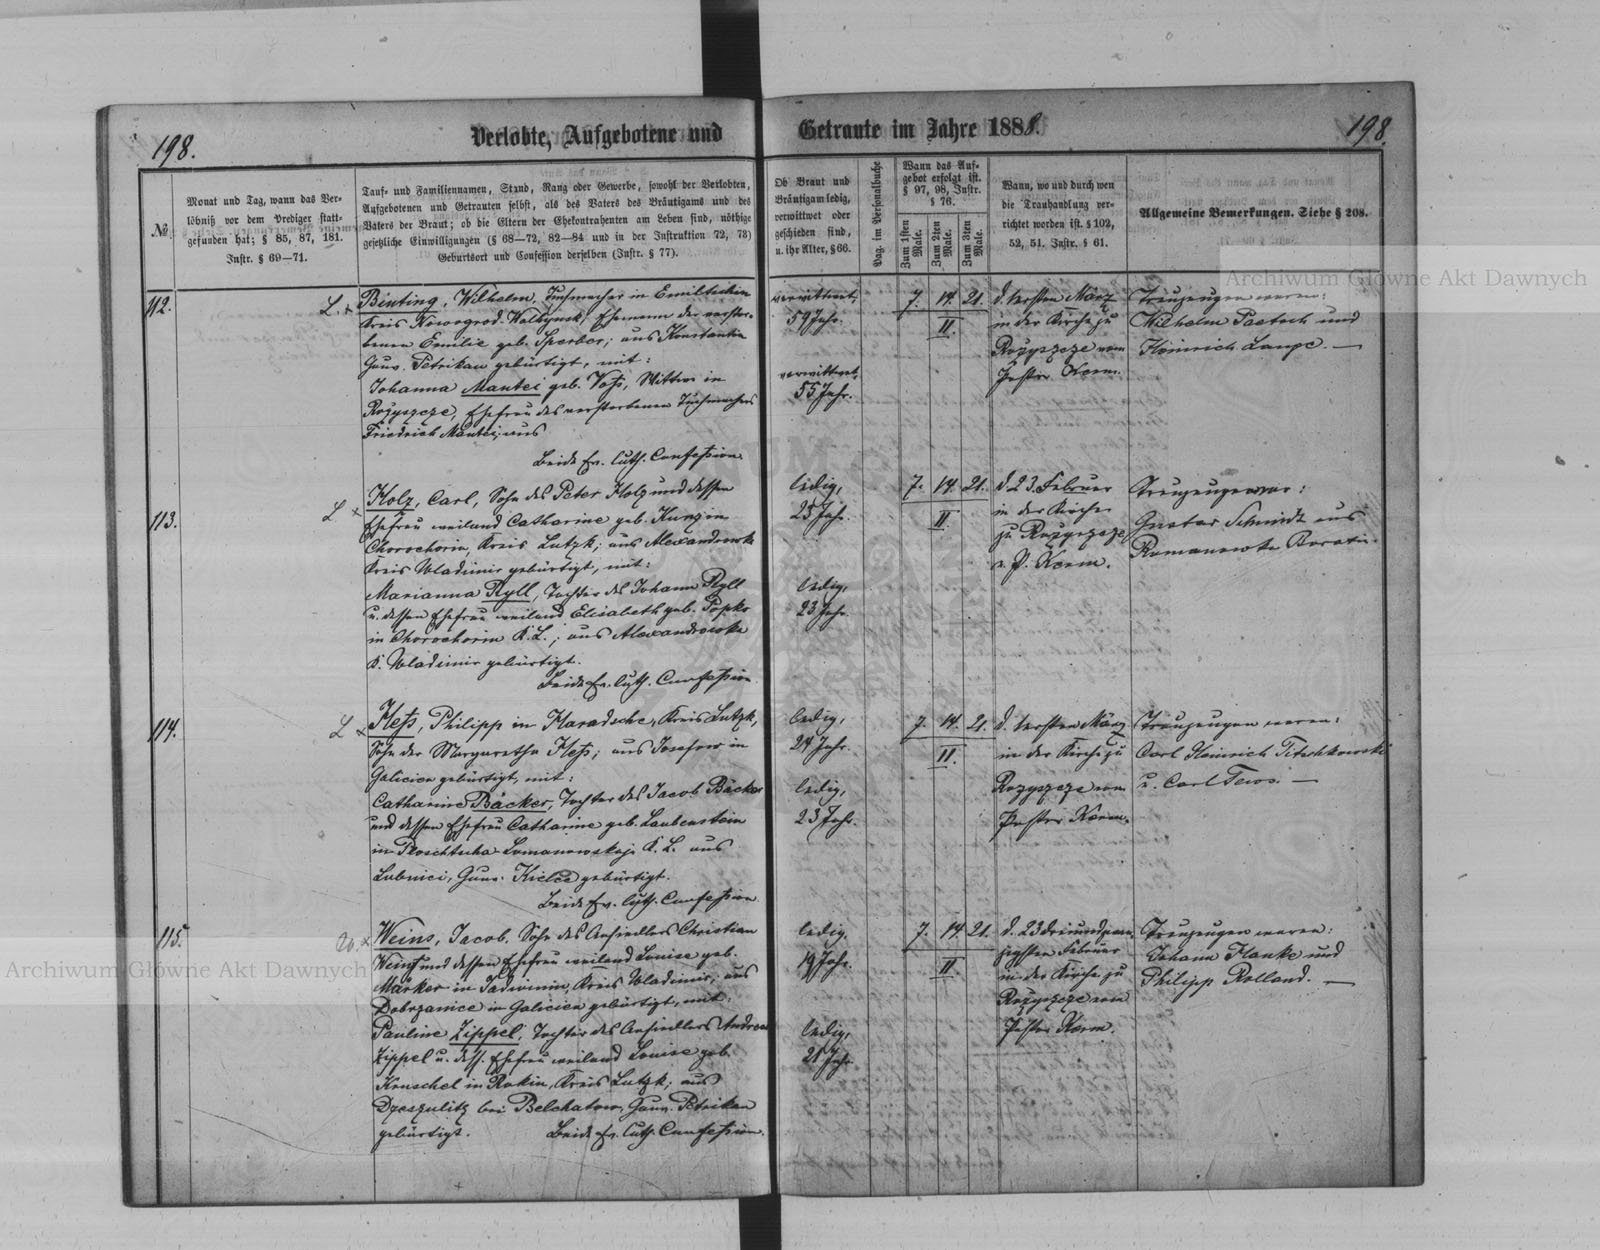 198.
Verlobte, Aufgebotene und
Getraute im Jahre 1888.
198.
№
Monat und Tag, wann das Ver-
löbniß vor dem Prediger statt-
gefunden hat; § 85, 87, 181.
Instr. § 69—71.
Tauf- und Familiennamen, Stand, Rang oder Gewerbe, sowohl der Verlobten,
Aufgebotenen und Getrauten selbst, als des Vaters des Bräutigams und des
Vaters der Braut; ob die Eltern der Ehekontrahenten am Leben sind, nöthige
gesetzliche Einwilligungen (§ 68—72, 82—84 und in der Instruktion 72, 73)
Geburtsort und Confession derselben (Instr. § 77).
Ob Braut und
Bräutigam ledig,
verwittwet oder
geschieden sind,
u. ihr Alter, § 66.
Pag. im Personalbuche
Wann das Auf-
gebot erfolgt ist.
§ 97, 98, Instr.
§ 76.
Zum 1sten Male.
Zum 2ten Male.
Zum 3ten Male.
Wann, wo und durch wen
die Trauhandlung ver-
richtet worden ist. § 102,
52, 51. Instr. § 61.
Allgemeine Bemerkungen. Siehe § 208.
Archiwum Główne Akt Dawnych
112.
L. x
Binting, Wilhelm, Tuchmacher in Emiltschin
Kreis Nowograd-Wolhynsk, Ehemann der verstor-
benen Emilie geb. Sperber; aus Konstantin
Guv. Petrikau gebürtigt, mit:
Johanna Mantei geb. Voß, Wittwe in
Rożyszcze, Ehefrau des verstorbenen Tuchmachers
Friedrich Mantei; aus
Beide Ev. luth. Confession
verwittwet,
59 Jahr.
verwittwet,
55 Jahr.
7. 14. 21.
II.
d. ersten März
in der Kirche zu
Rożyszcze vom
Pastor Kerm.
Trauzeugen waren:
Wilhelm Paetsch und
Heinrich Lange. —
113.
L x
Holz, Carl, Sohn des Peter Holz und dessen
Ehefrau weiland Catharine geb. Kunz in
Chorochorin, Kreis Lutzk; aus Alexandrowka
Kreis Wladimir gebürtigt, mit:
Marianna Ryll, Tochter des Johann Ryll
u. dessen Ehefrau weiland Elisabeth geb. Popko
in Chorochorin K. L.; aus Alexandrowka
K. Wladimir gebürtigt.
Beide Ev. luth. Confession
ledig,
25 Jahr.
ledig,
23 Jahr.
7. 14. 21.
II.
d. 23. Februar
in der Kirche
zu Rożyszcze
v. P. Kerm.
Trauzeugen war:
Gustav Schmidt aus
Romanowka Boratin.
114.
L x
Heß, Philipp in Haradsche, Kreis Lutzk,
Sohn der Margaretha Heß; aus Josefow in
Galicien gebürtigt, mit:
Catharine Bäcker, Tochter des Jacob Bäcker
und dessen Ehefrau Catharine geb. Laubenstein
in Ploschtscha Lomanowskaja K. L. aus
Lubnici, Guv. Kielce gebürtigt.
Beide Ev. luth. Confession
ledig,
24 Jahr.
ledig,
23 Jahr.
7. 14. 21.
II.
d. ersten März
in der Kirche zu
Rożyszcze vom
Pastor Kerm.
Trauzeugen waren:
Carl Heinrich Titschkowski
u. Carl Tews. —
115.
W. x
Weins, Jacob, Sohn des Ansiedlers Christian
Weins und dessen Ehefrau weiland Louise geb.
Märker in Sadowin, Kreis Wladimir, aus
Dobrzanice in Galicien gebürtigt, mit:
Pauline Zippel, Tochter des Ansiedlers Andreas
Zippel u. dess. Ehefrau weiland Louise geb.
Kruschel in Rokin, Kreis Lutzk; aus
Dzeszulitz bei Belchatow, Guv. Petrikau
gebürtigt. Beide Ev. luth. Confession.
ledig,
19 Jahr.
ledig,
21 Jahr.
7. 14. 21.
II.
d. 23 dreiundzwan-
zigsten Februar
in der Kirche zu
Rożyszcze vom
Pastor Kerm.
Trauzeugen waren:
Johann Hanke und
Philipp Rolland. —
Archiwum Główne Akt Dawnych